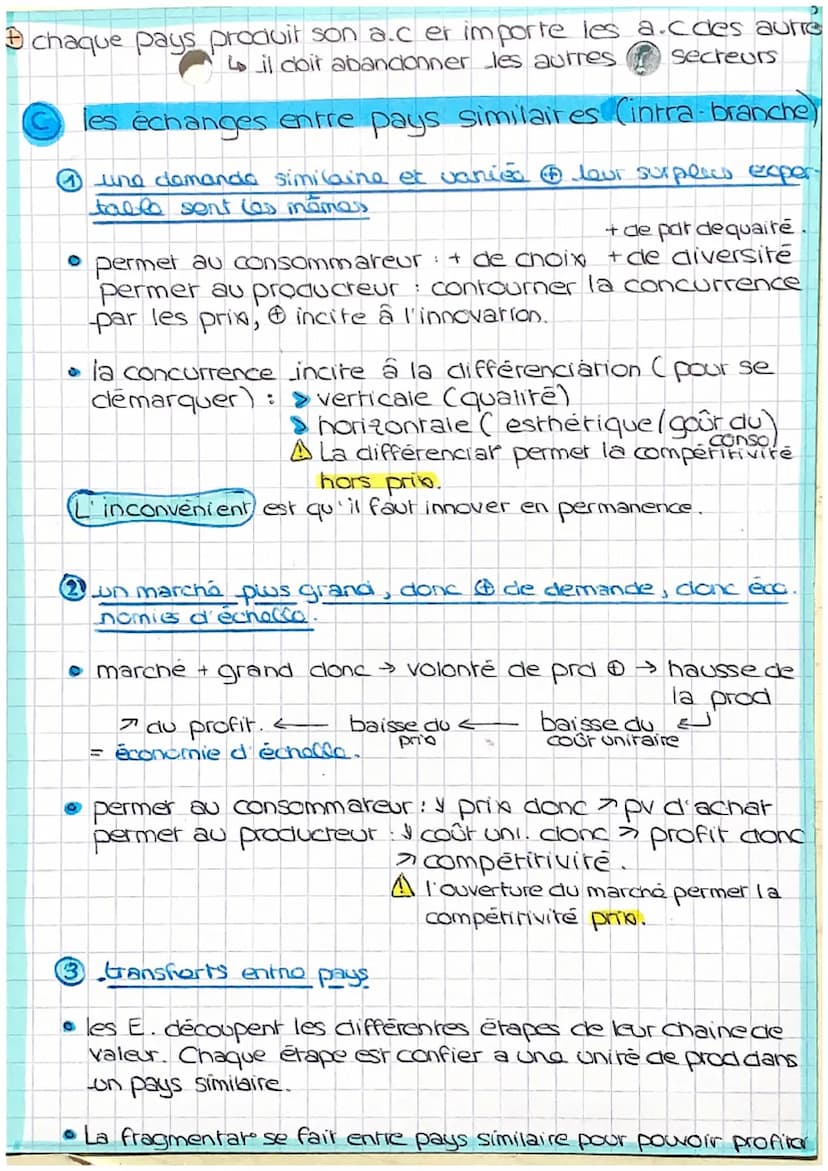 ⊕ chaque pays produit son a.c et importe les a.c des autre
↳ il doit abandonner les autres secteurs
C les échanges entre pays similaires (intra-branche)
① une demande similaire et variée ⊕ leur surplus expor-
table sont les mêmes
+ de part de qualité.
• permet au consommateur : + de choix + de diversité
permet au producteur : contourner la concurrence
par les prix, ⊕ incite à l'innovation.
• la concurrence incite à la différenciation (pour se
démarquer) : > verticale (qualité)
> horizontale (esthétique/goût du
conso)
⚠ La différenciat° permet la compétitivité
hors prix.
L'inconvénient est qu'il faut innover en permanence.
② un marché plus grand, donc ⊕ de demande, donc éco.
nomies d'échelle.
• marché + grand donc → volonté de prd ⊕ → hausse de
la prod
↗ du profit. ← baisse du ← baisse du ↵
prix coût unitaire
= économie d'échelle.
• permet au consommateur : ↓ prix donc ↗ pv d'achat
permet au producteur : ↓ coût uni. donc ↗ profit donc
↗ compétitivité.
⚠ l'ouverture du marché permet la
compétitivité prix.
③ transferts entre pays
• les E. découpent les différentes étapes de leur chaine de
valeur. Chaque étape est confier a une unité de prod dans
un pays similaire.
• La fragmentat° se fait entre pays similaire pour pouvoir profiter